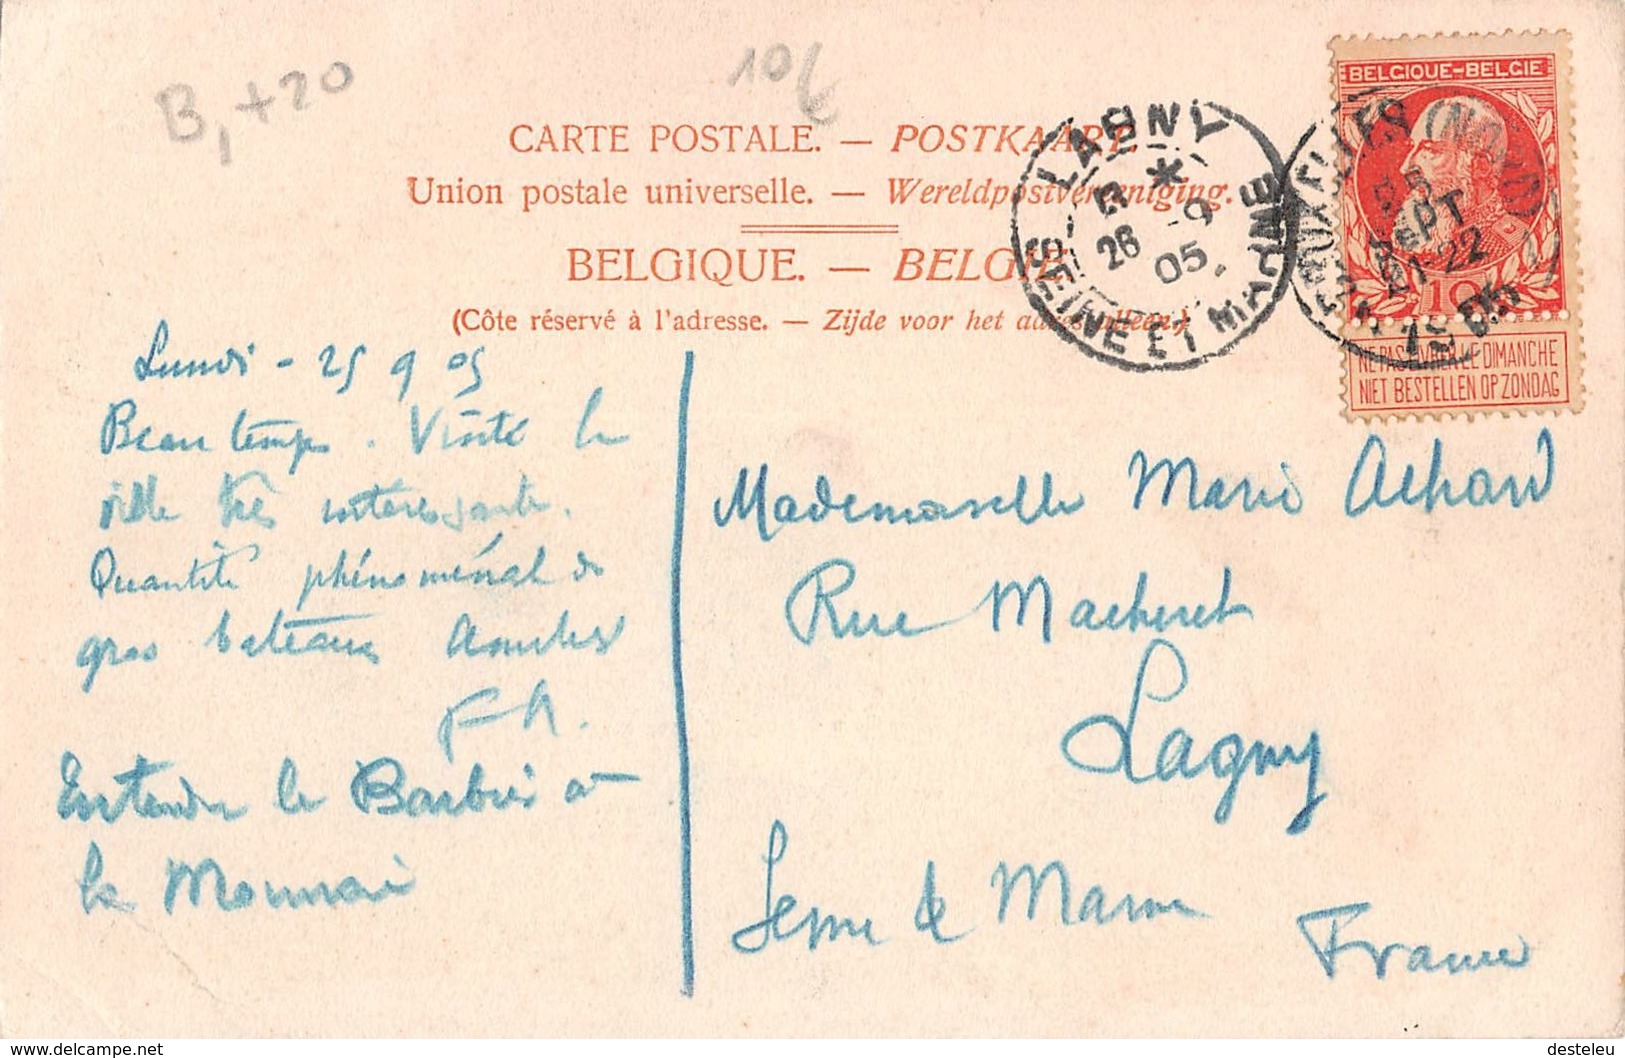 B, +20
10€
CARTE POSTALE. — POSTKAART.
Union postale universelle. — Wereldpostvereeniging.
BELGIQUE. — BELGIE.
(Côte réservé à l'adresse. — Zijde voor het adres alleen.)
LAGNY
26 -9
05
SEINE ET MARNE
BELGIQUE-BELGIE
BRUXELLES (NORD)
25
SEPT
21-22
1905
10
NE PAS LIVRER LE DIMANCHE
NIET BESTELLEN OP ZONDAG
Lundi - 25 9 05
Beau temps. Visité la
ville très intéressante.
Quantité phénoménal de
gros bateaux Amitiés
FA.
Entendu le Barbier à
la Monnaie
Mademoiselle Marie Achard
Rue Macheret
Lagny
Seine & Marne
France
delcampe.net
desteleu